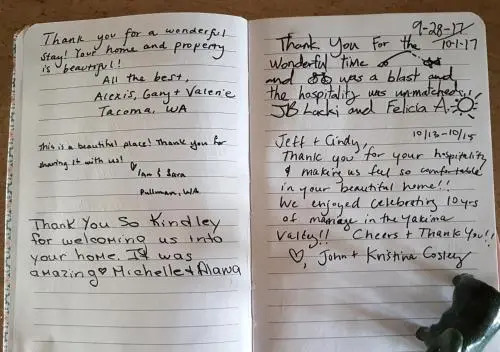 Thank you for a wonderful
stay! Your home and property
is beautiful!
All the best,
Alexis, Gary + Valerie
Tacoma, WA
This is a beautiful place! Thank you for
sharing it with us!
Ian & Sara
Pullman, WA
Thank You So Kindley
for welcoming us into
your home. It was
amazing ♥ Michelle + Alana
9-28-17/
10-1-17
Thank You For the
Wonderful time
and was a blast and
the hospitality was unmatched!!
JB Lacki and Felicia A.
10/13-10/15
Jeff + Cindy,
Thank you for your hospitality
& making us feel so comfortable
in your beautiful home!!
We enjoyed celebrating 10 yrs
of marriage in the Yakima
Valley!! Cheers + Thank You!!
♡, John + Kristina Cosley